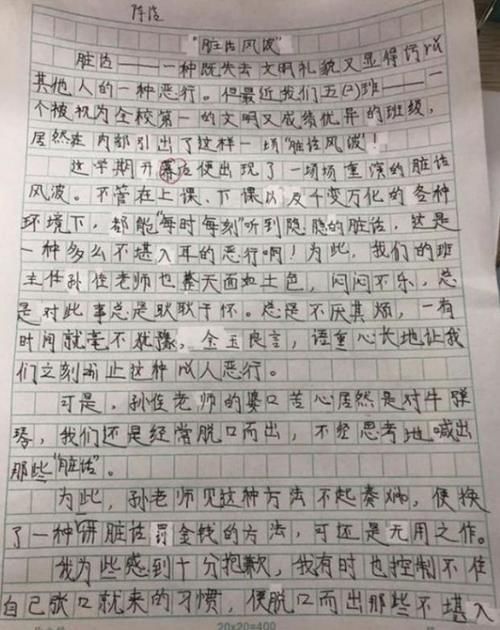 "脏话风波"
脏话——一种既失去文明礼貌又显得污
其他人的一种恶行。但最近我们五㈡班——一
个被视为全校第一的文明又成绩优异的班级,
居然在内部引出了这样一场"脏话风波"!
这学期开幕后便出现了一场场重演的脏话
风波。不管在上课、下课以及千变万化的各种
环境下,都能"每时每刻"听到隐隐的脏话,这是
一种多么不堪入耳的恶行啊!为此,我们的班
主任孙佳老师也整天面如土色,闷闷不乐,总
是对此事总是耿耿于怀。总是不厌其烦,一有
时间就毫不犹豫,金玉良言,语重心长地让我
们立刻制止这种 人恶行。
可是,孙佳老师的婆口苦心居然是对牛弹
琴,我们还是经常脱口而出,不经思考地喊出
那些"脏话"。
为此,孙老师见这种方法不起奏效,便换
了一种讲脏话罚金钱的方法,可还是无用之作。
我为些感到十分抱歉,我有时也控制不住
自己张口就来的习惯,便脱口而出那些不堪入
20x20=400